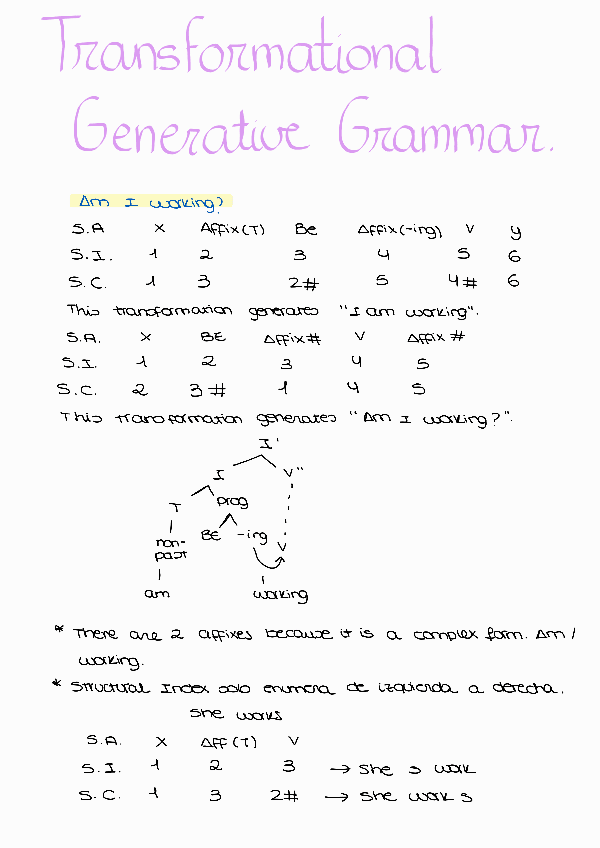 Transformational
Generative Grammar.
Am I working?
S.A X Affix(T) Be Affix(-ing) V y
S.I. 1 2 3 4 5 6
S.C. 1 3 2# 5 4# 6
This transformation generates "I am working".
S.A. X BE Affix# V Affix#
S.I. 1 2 3 4 5
S.C. 2 3# 1 4 5
This transformation generates "Am I working?".
I'
I V"
T prog
non-past BE -ing V
am working
* There are 2 affixes because it is a complex form. Am /
working.
* Structural Index solo enumera de izquierda a derecha.
She works
S.A. X Aff(T) V
S.I. 1 2 3 → She s work
S.C. 1 3 2# → She work s